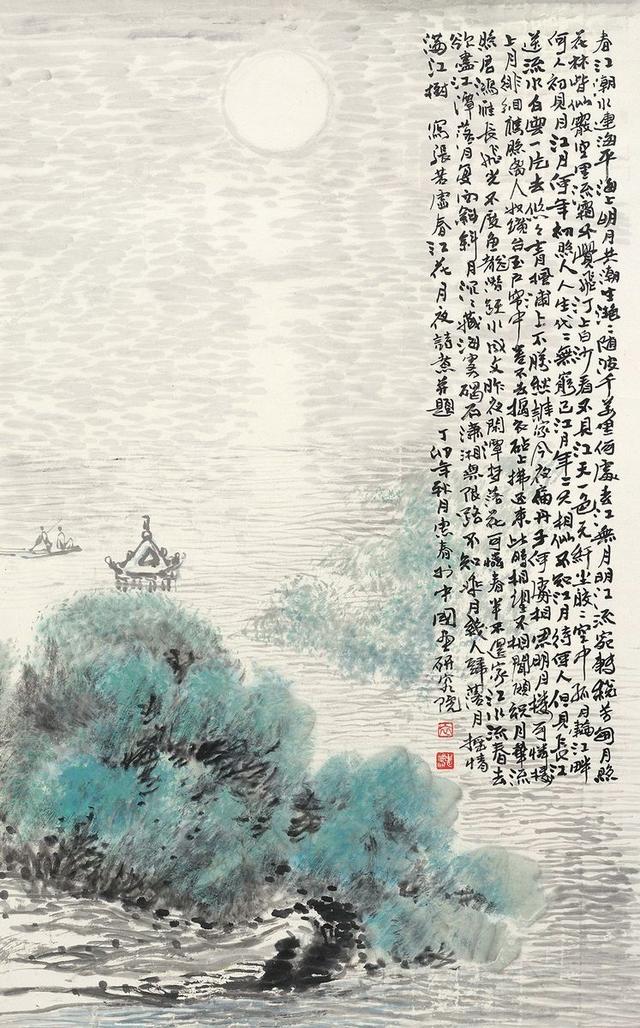 春江潮水連海平海上明月共潮生灧〻随波千萬里何處春江無月明江流宛轉繞芳甸月照
花林皆似霰空里流霜不覺飛汀上白沙看不見江天一色无纤尘皎〻空中孤月輪江畔
何人初見月江月何年初照人人生代〻無窮已江月年〻只相似不知江月待何人但見長江
送流水白雲一片去悠〻青楓浦上不勝愁誰家今夜扁舟子何處相思明月楼可憐楼
上月徘徊應照離人妆鏡台玉戶帘中卷不去搗衣砧上拂还來此時相望不相聞願逐月華流
照君鴻雁長飛光不度魚龍潛躍水成文昨夜閑潭梦落花可憐春半不還家江水流春去
欲盡江潭落月复西斜斜月沉〻藏海雾碣石瀟湘無限路不知乘月幾人歸落月摇情
滿江樹 寫張若虛春江花月夜詩意并題 丁卯年秋月春於中國画研究院